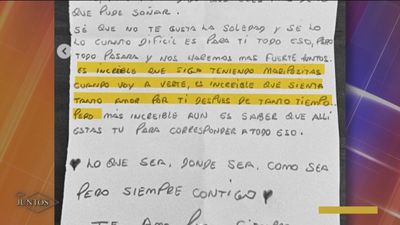 QUE PUDE SOÑAR.
SÉ QUE NO TE GUSTA LA SOLEDAD Y SE LO
LO CUANTO DIFICIL ES PARA TI TODO ESO, PERO
TODO PASARA Y NOS HAREMOS MAS FUERTE JUNTOS.
ES INCREIBLE QUE SIGA TENIENDO MARIPOSITAS
CUANDO VOY A VERTE, ES INCREIBLE QUE SIENTA
TANTO AMOR POR TI DESPUES DE TANTO TIEMPO.
PERO MÁS INCREIBLE AUN ES SABER QUE ALLI
ESTAS TU PARA CORRESPONDER A TODO ESO.
♥ LO QUE SEA, DONDE SEA, COMO SEA
PERO SIEMPRE CONTIGO ♥
TE AMO POR SIEMPRE
JUNTOS